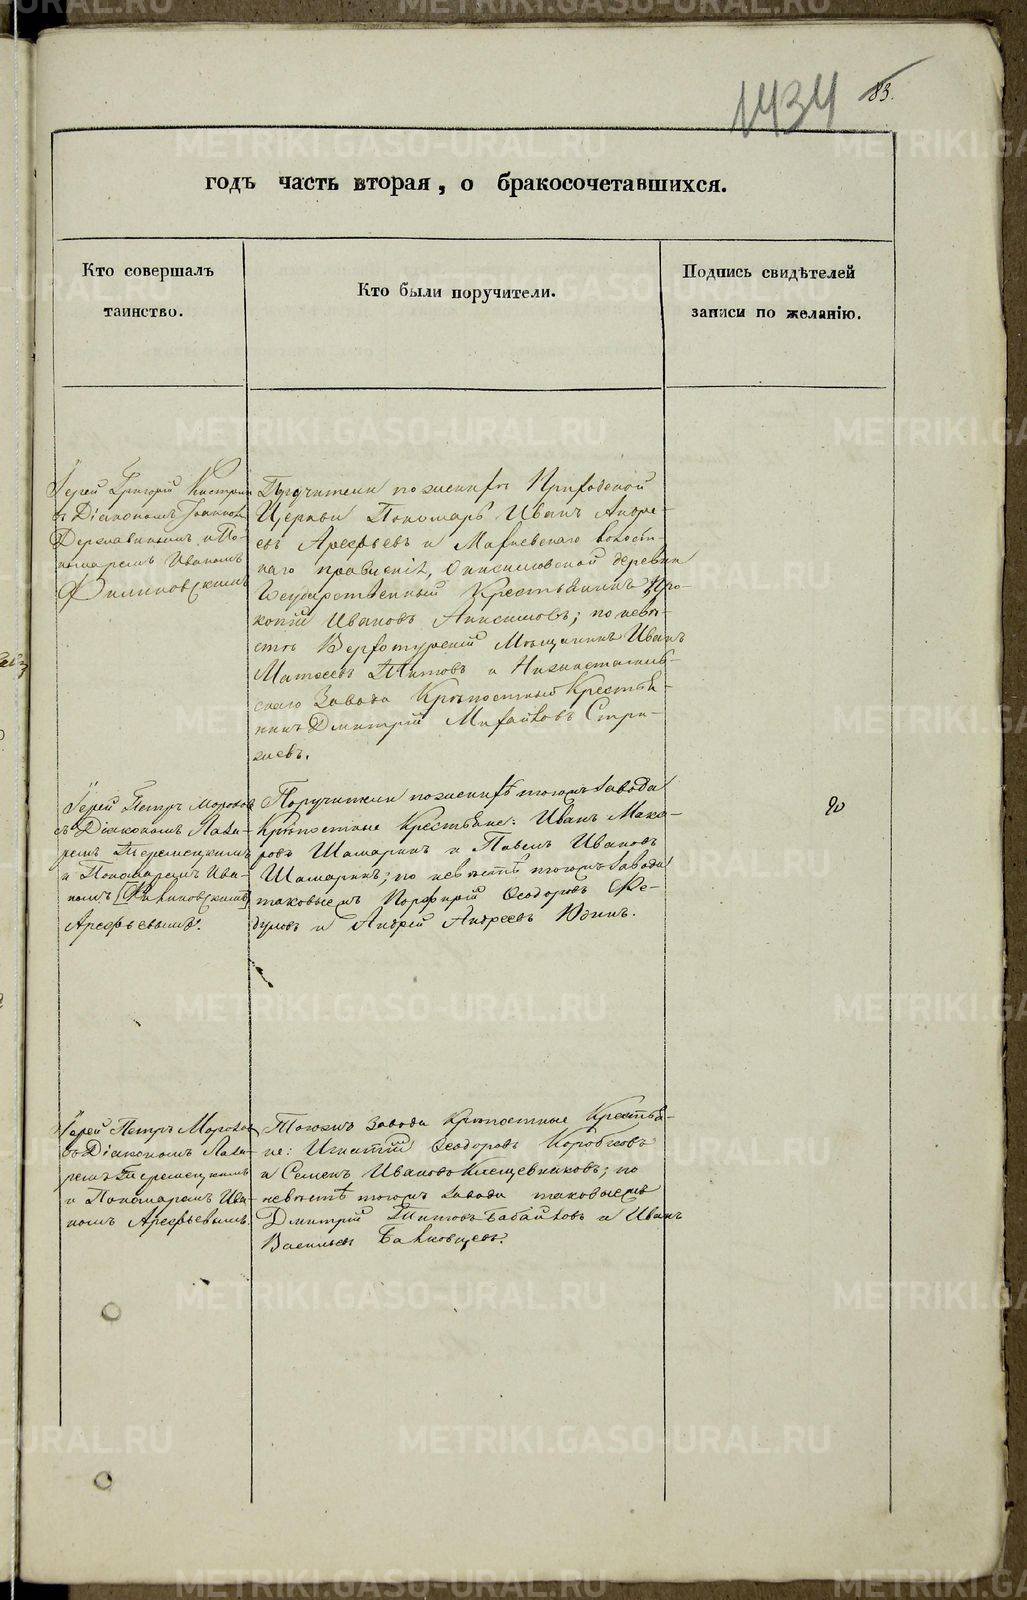 1434 83.
годъ часть вторая, о бракосочетавшихся.
Кто совершалъ
таинство.
Кто были поручители.
Подпись свидѣтелей
записи по желанію.
Іерей Григорій
съ Діакономъ Іоанномъ
Державинымъ и По-
номаремъ Иваномъ
Филиновскимъ
Поручители по женихѣ Приходской
Церкви Пономарь Иванъ Андре-
евъ Арефьевъ и волост-
наго правленія, деревни
Государственный Крестьянинъ Про-
копій Ивановъ Анисимовъ; по невѣ-
стѣ Верхотурскій Мѣщанинъ Иванъ
Матѳеевъ Титовъ и Нижнетагиль-
скаго Завода Крѣпостный Крестья-
нинъ Дмитрій Михайловъ Стри-
жевъ.
Іерей Петръ Морозов
съ Діакономъ Лаза-
ремъ Теремецкимъ
и Пономаремъ Ива-
номъ [Филиновскимъ]
Арефьевымъ.
Поручители по женихѣ тогожъ Завода
Крѣпостные Крестьяне: Иванъ Мака-
ровъ Шамаринъ и Павелъ Ивановъ
Шамаринъ; по невѣстѣ тогожъ Завода
таковые жъ Порфирій Ѳеодоровъ Ѳе-
дуловъ и Андрей Андреевъ Юдинъ.
Іерей Петръ Морозов
съ Діакономъ Лаза-
ремъ Теремецкимъ
и Пономаремъ Ива-
номъ Арефьевымъ.
Тогожъ Завода Крѣпостные Крестья-
не: Игнатій Ѳеодоровъ Коробковъ
и Семенъ Ивановъ Клещевниковъ; по
невѣстѣ тогожъ Завода таковые жъ
Дмитрій Титовъ Бабайловъ и Иванъ
Васильевъ
METRIKI.GASO-URAL.RU